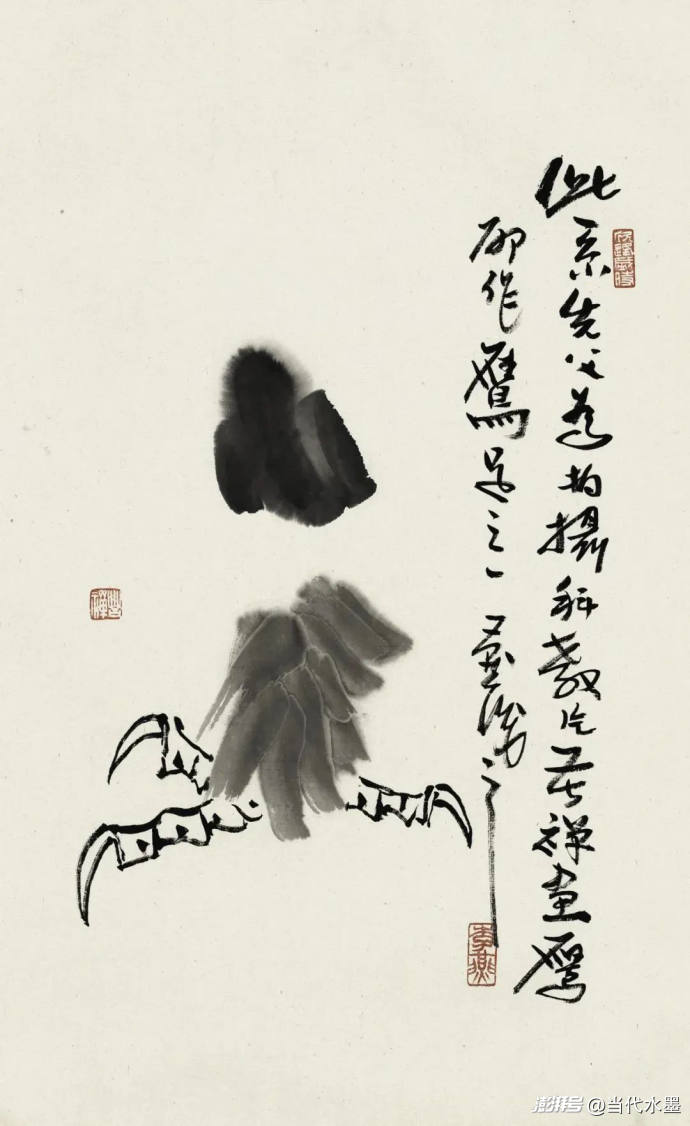 此系先父为拍摄科教片苦禅画鹰
所作鹰足之一 识之
李燕
澎湃号 @当代水墨